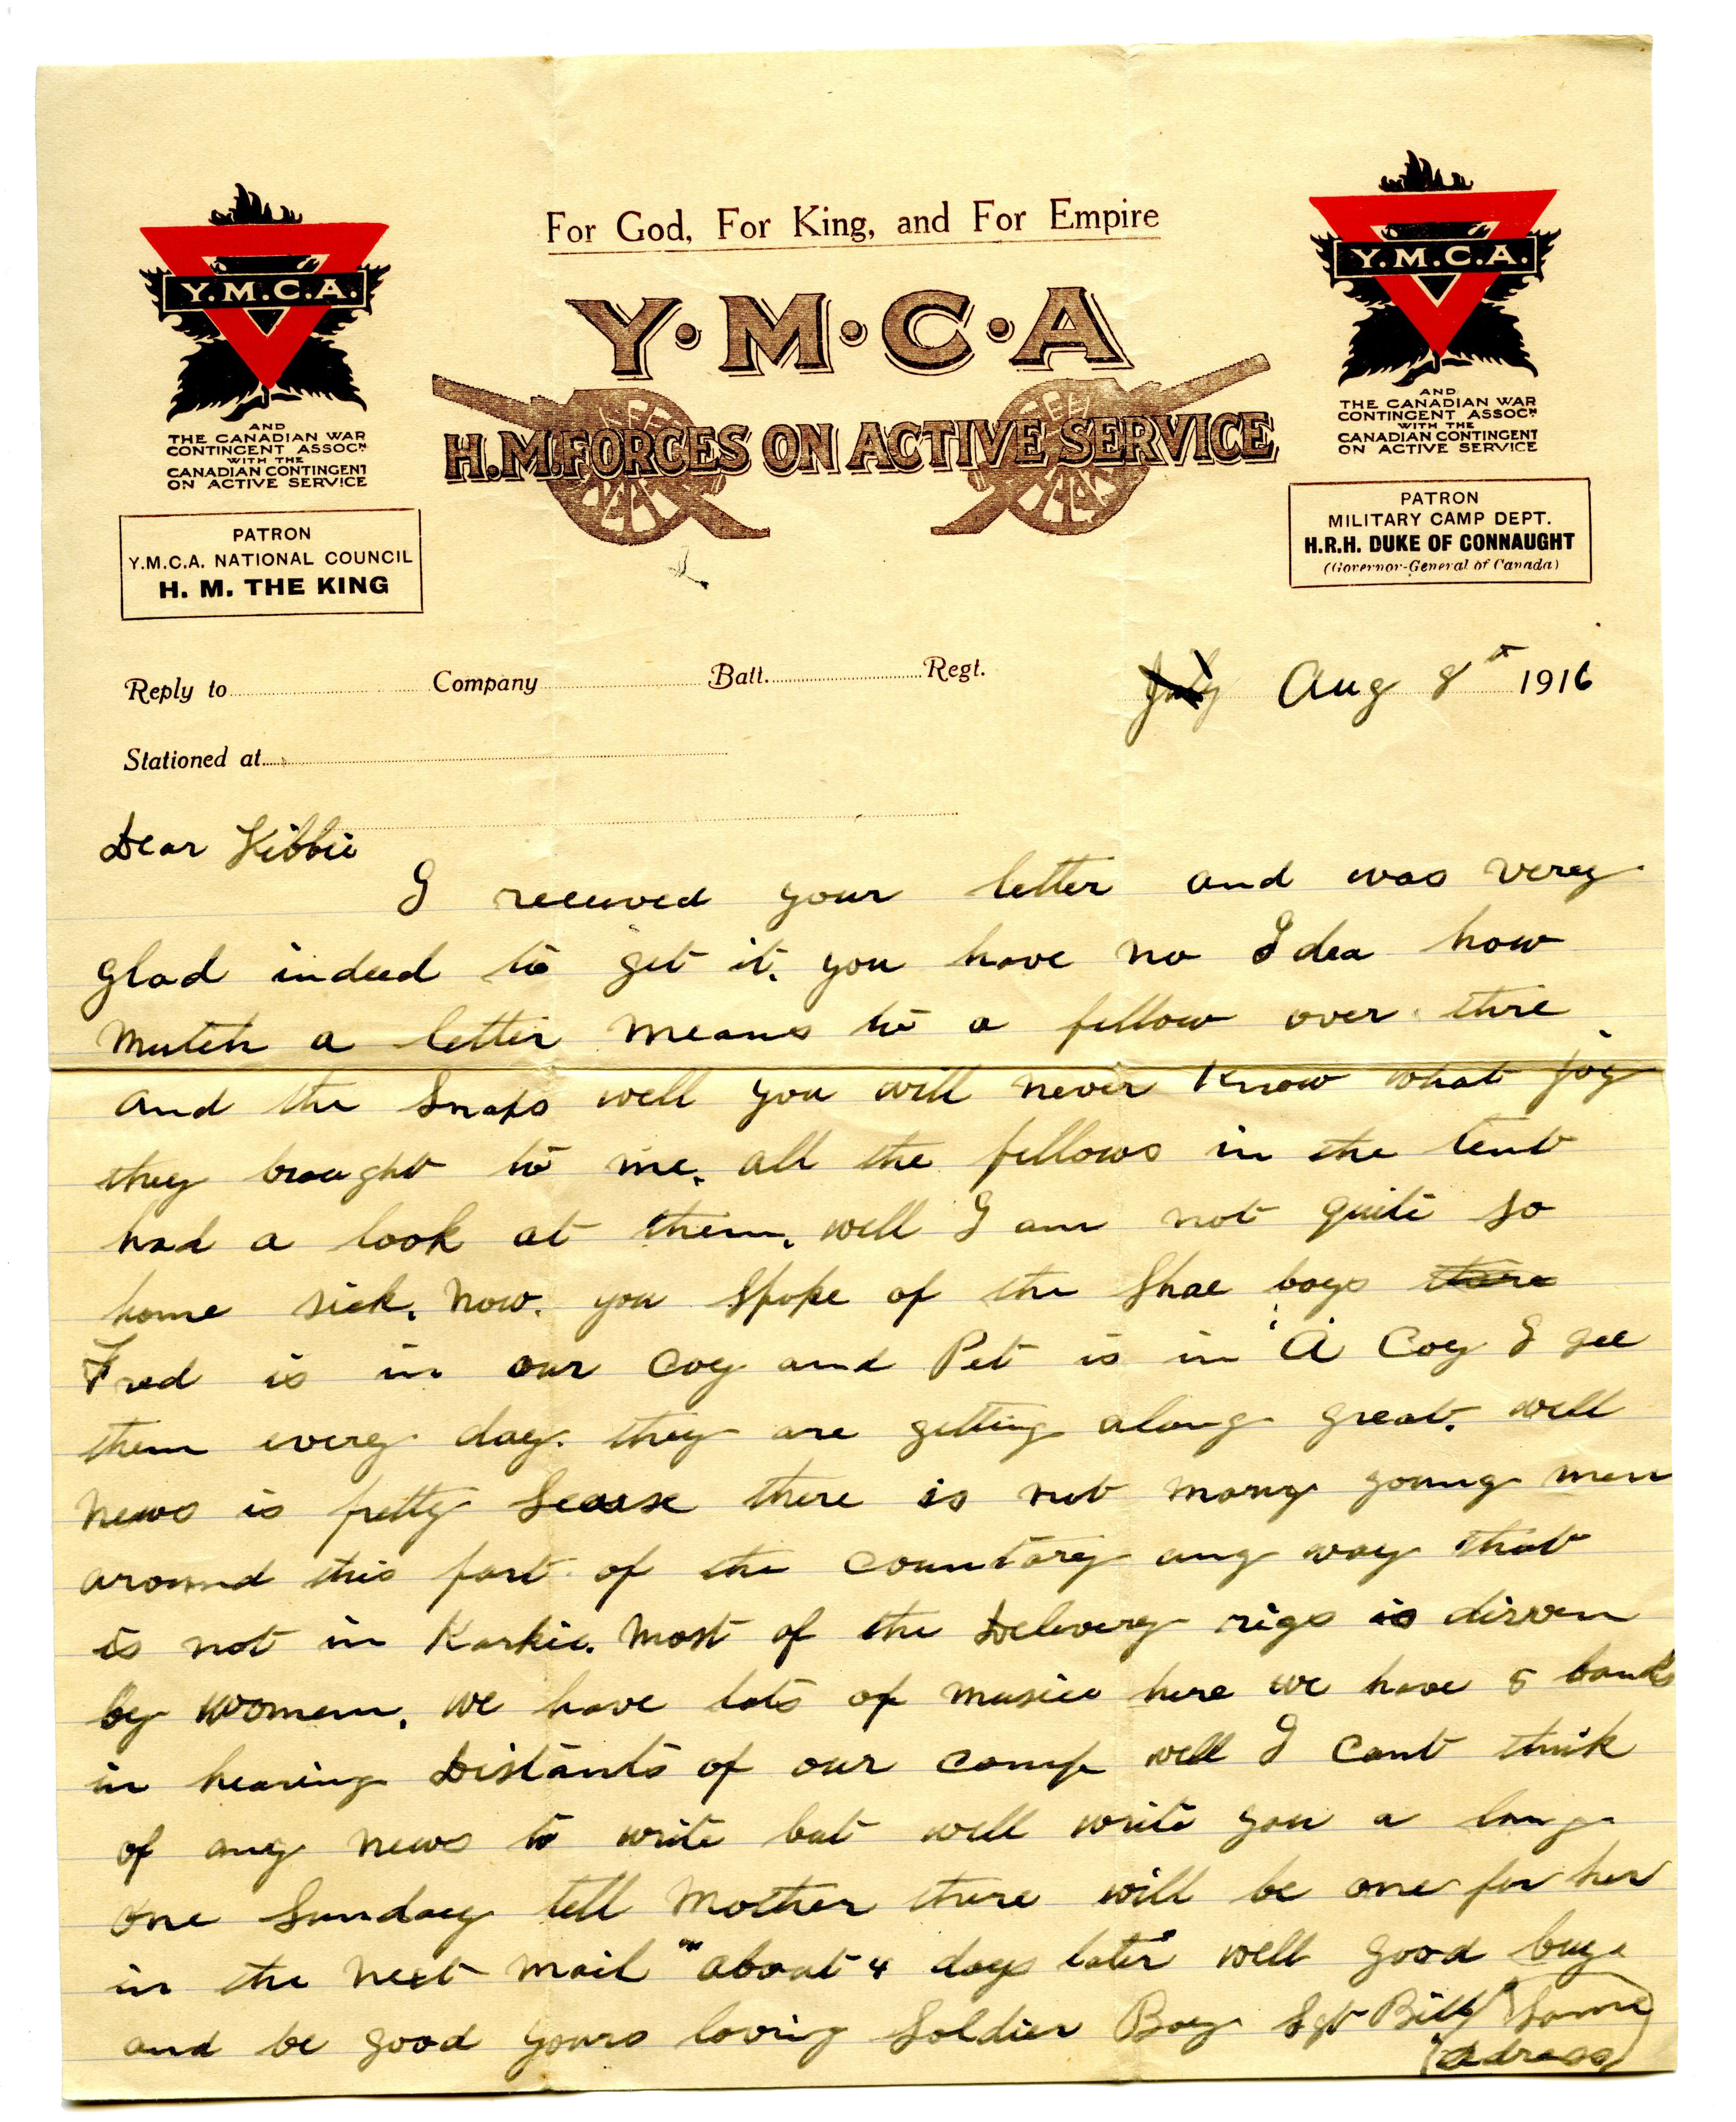 For God, For King, and For Empire
Y.M.C.A.
AND
THE CANADIAN WAR
CONTINGENT ASSOCN
WITH THE
CANADIAN CONTINGENT
ON ACTIVE SERVICE
PATRON
Y.M.C.A. NATIONAL COUNCIL
H. M. THE KING
Y·M·C·A
H.M. FORCES ON ACTIVE SERVICE
Y.M.C.A.
AND
THE CANADIAN WAR
CONTINGENT ASSOCN
WITH THE
CANADIAN CONTINGENT
ON ACTIVE SERVICE
PATRON
MILITARY CAMP DEPT.
H.R.H. DUKE OF CONNAUGHT
(Governor-General of Canada)
Reply to Company Batt. Regt. July Aug 8th 1916
Stationed at
Dear Kibbie
I received your letter and was verey
glad indeed to get it. you have no Idea how
mutch a letter means to a fellow over there
and the Snaps well you will never know what joy
they brought to me. all the fellows in the tent
had a look at them. well I am not quite so
home sick. now. you spoke of the Shae boys
Fred is in our Coy and Pet is in 'A' Coy I see
them every day. they are getting along great. well
news is pretty Scarse there is not many young men
around this part of the countarey any way that
is not in Karkie. most of the Delevery rigs is dirven
by women. we have lots of musice here we have 5 bands
in hearing Distants of our camp well I cant think
of any news to write but well write you a long
one Sunday tell Mother there will be one for her
in the next mail "about 4 days later" well good buye
and be good yours loving Soldier Boy Sgt Billy (Same
adress)